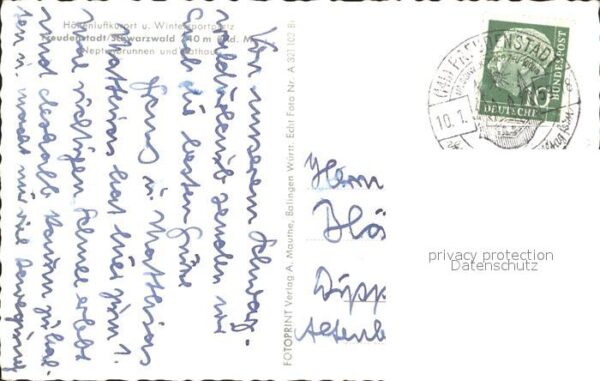 Höhenluftkurort u. Wintersportplatz
Freudenstadt/Schwarzwald 740 m ü. d. M.
Neptunbrunnen und Rathaus
Von unserem Schwarz-
waldurlaub senden wir
Euch die besten Grüße
Hans u. Matthias
Matthias hat hier zum 1.
mal richtigen Schnee erlebt
und ist deshalb kaum zu hal-
ten u. macht mir viel
FOTOPRINT Verlag A. Mauthe, Balingen Württ. Echt Foto Nr. A 321 102 Bi
FREUDENSTADT
10.1.
DEUTSCHE
BUNDESPOST
10
Herrn
Düpp
Altenb
privacy protection
Datenschutz